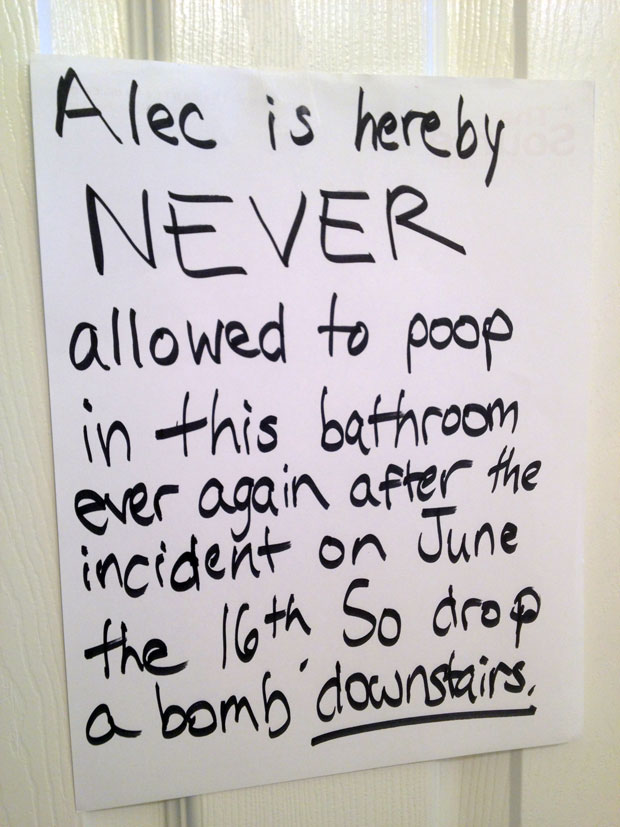 Alec is hereby
NEVER
allowed to poop
in this bathroom
ever again after the
incident on June
the 16th So drop
a bomb downstairs.